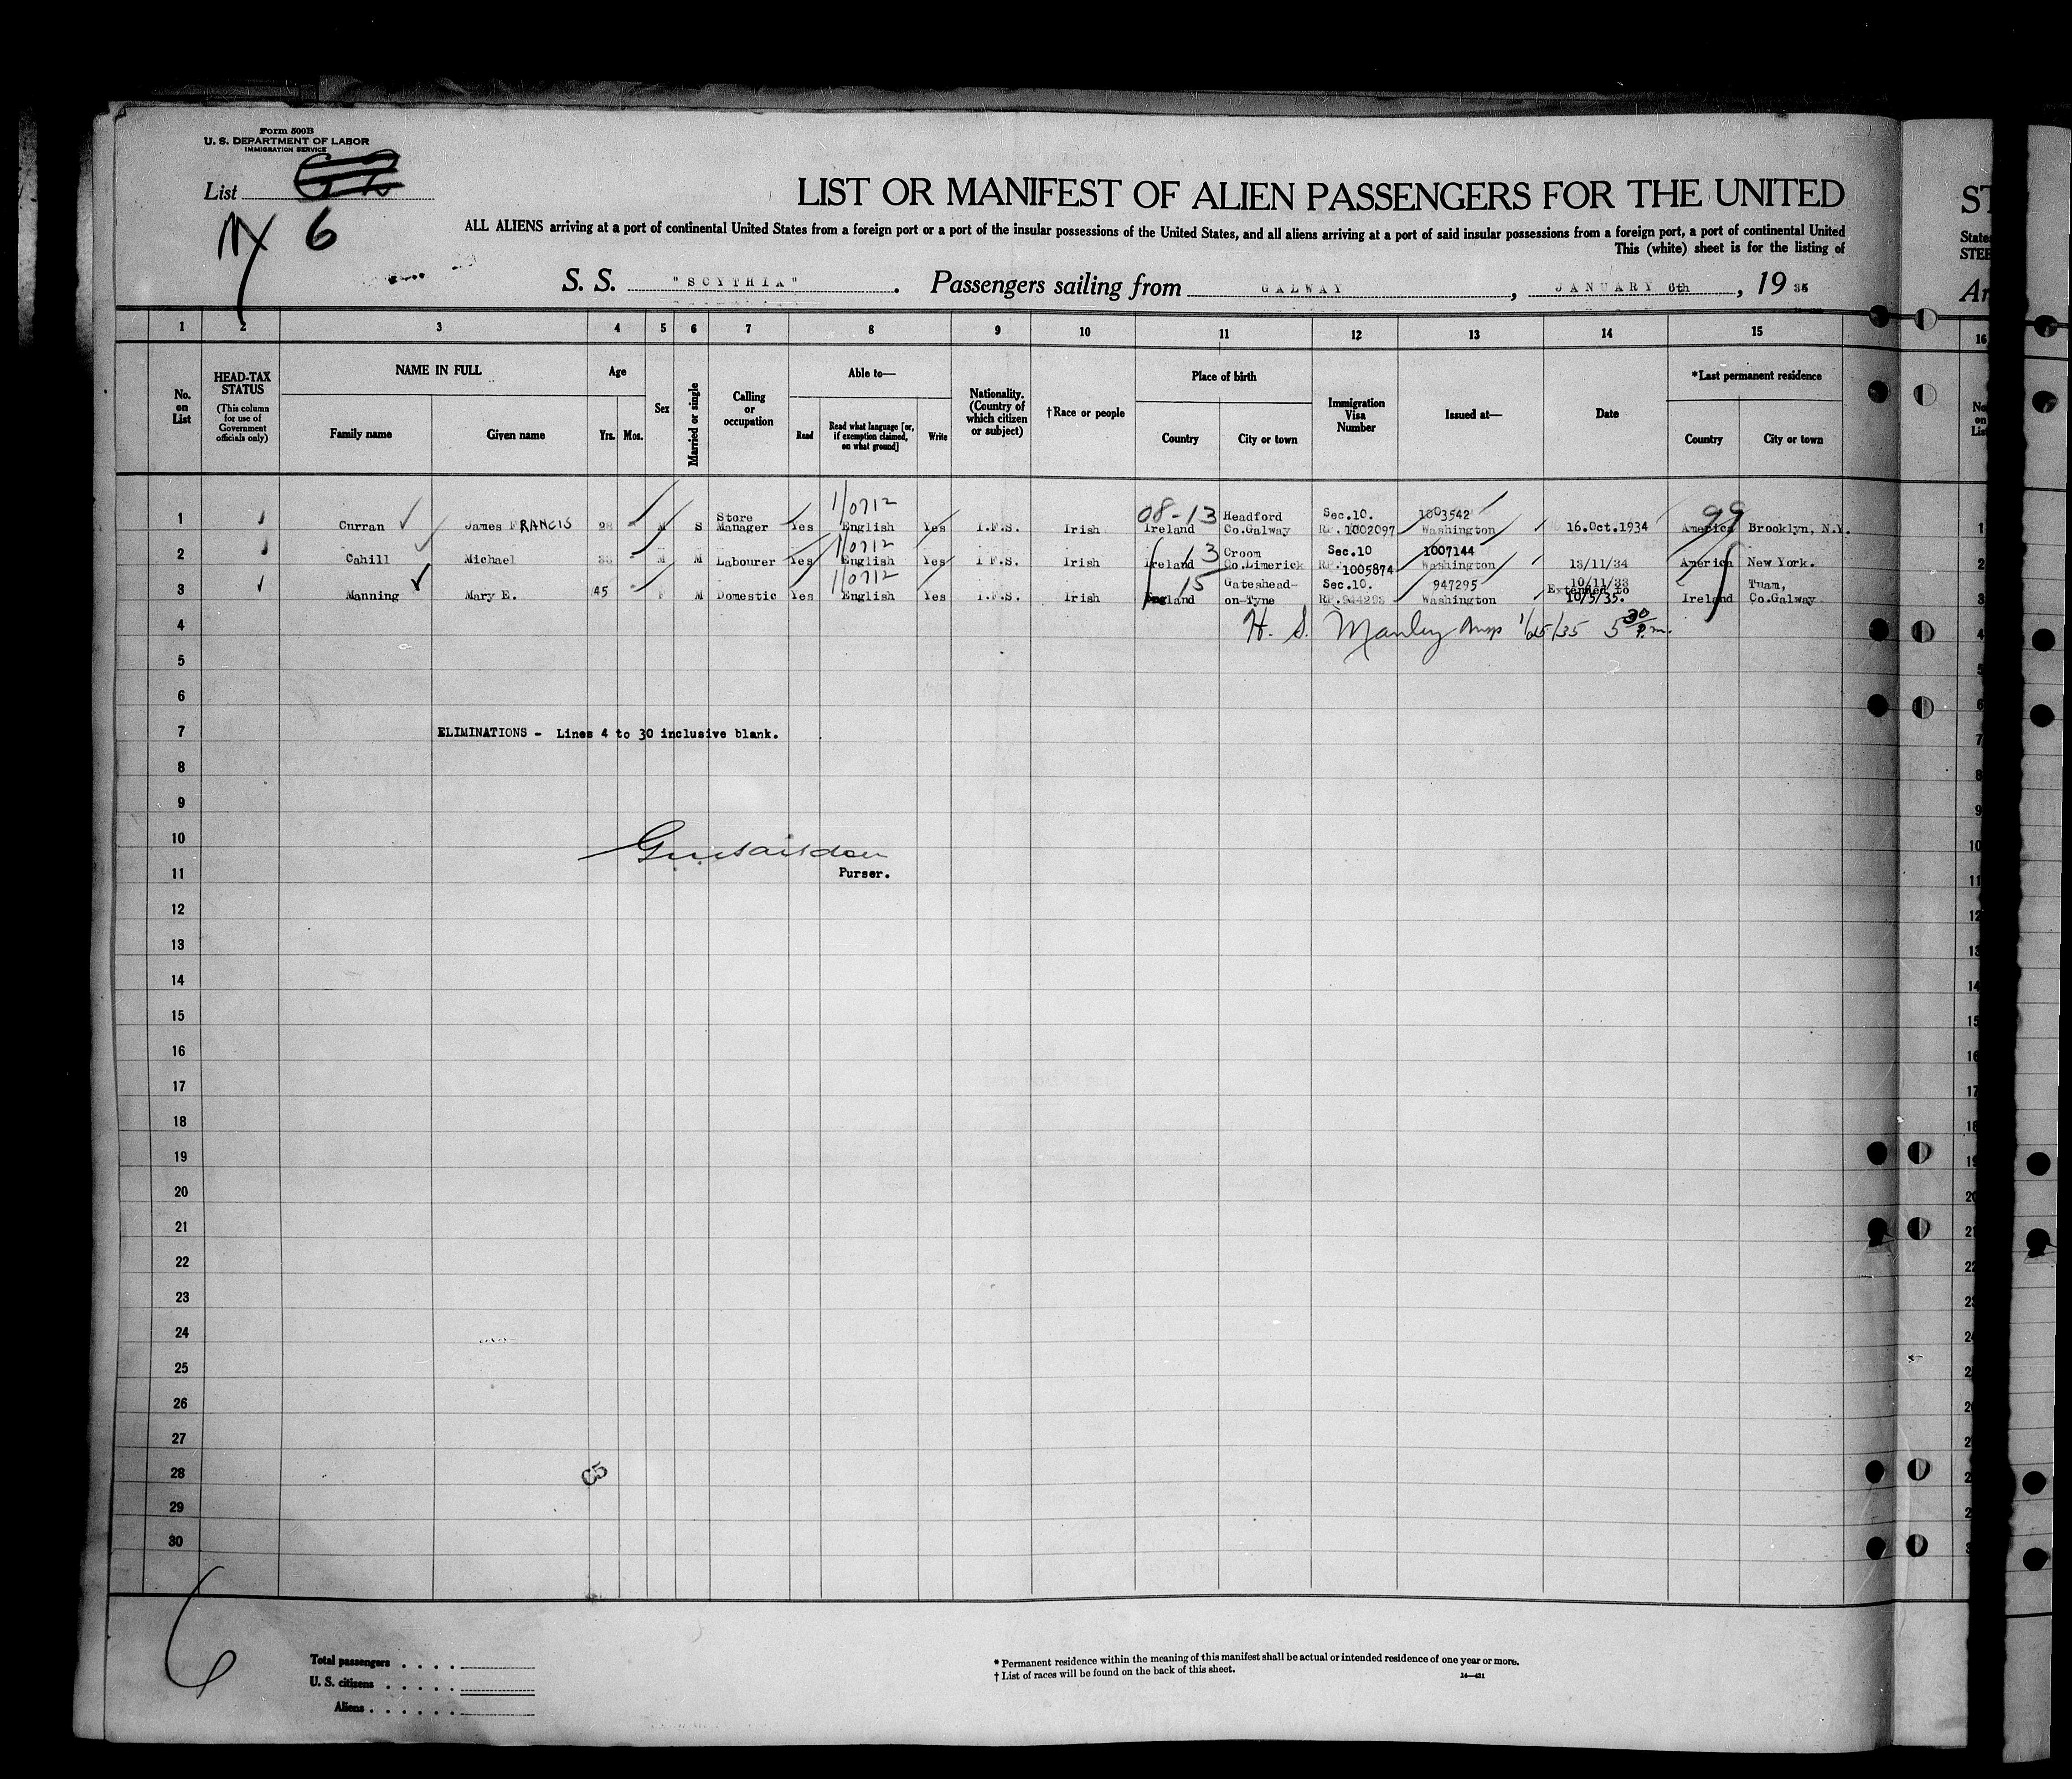 Form 500B
U. S. DEPARTMENT OF LABOR
IMMIGRATION SERVICE
List
NY 6
LIST OR MANIFEST OF ALIEN PASSENGERS FOR THE UNITED
ALL ALIENS arriving at a port of continental United States from a foreign port or a port of the insular possessions of the United States, and all aliens arriving at a port of said insular possessions from a foreign port, a port of continental United
This (white) sheet is for the listing of
S. S. "SCYTHIA". Passengers sailing from GALWAY, JANUARY 6th, 1935
1 2 3 4 5 6 7 8 9 10 11 12 13 14 15
No. on List
HEAD-TAX STATUS (This column for use of Government officials only)
NAME IN FULL
Family name Given name
Age
Yrs. Mos.
Sex
Married or single
Calling or occupation
Able to—
Read
Read what language [or, if exemption claimed, on what ground]
Write
Nationality. (Country of which citizen or subject)
†Race or people
Place of birth
Country City or town
Immigration Visa Number
Issued at—
Date
*Last permanent residence
Country City or town
1 Curran James FRANCIS 28 M S Store Manager Yes 1/0712 English Yes I.F.S. Irish 08-13 Ireland Headford Co.Galway Sec.10. RP.1002097 1003542 Washington 16.Oct.1934 99 America Brooklyn, N.Y.
2 Cahill Michael 33 M M Labourer Yes 1/0712 English Yes I F.S. Irish 13 Ireland Croom Co.Limerick Sec.10 RP.1005874 1007144 Washington 13/11/34 America New York.
3 Manning Mary E. 45 F M Domestic Yes 1/0712 English Yes I.F.S. Irish 15 England Gateshead-on-Tyne Sec.10. RP. 947295 Washington 10/11/33 Extended to 10/5/35. Ireland Tuam, Co.Galway
4 H. S. Manley Insp 1/25/35 5 30 P.m.
5
6
7 ELIMINATIONS - Lines 4 to 30 inclusive blank.
8
9
10
11 Purser.
12
13
14
15
16
17
18
19
20
21
22
23
24
25
26
27
28 C5
29
30
6
Total passengers
U. S. citizens
Aliens
* Permanent residence within the meaning of this manifest shall be actual or intended residence of one year or more.
† List of races will be found on the back of this sheet.
14—421